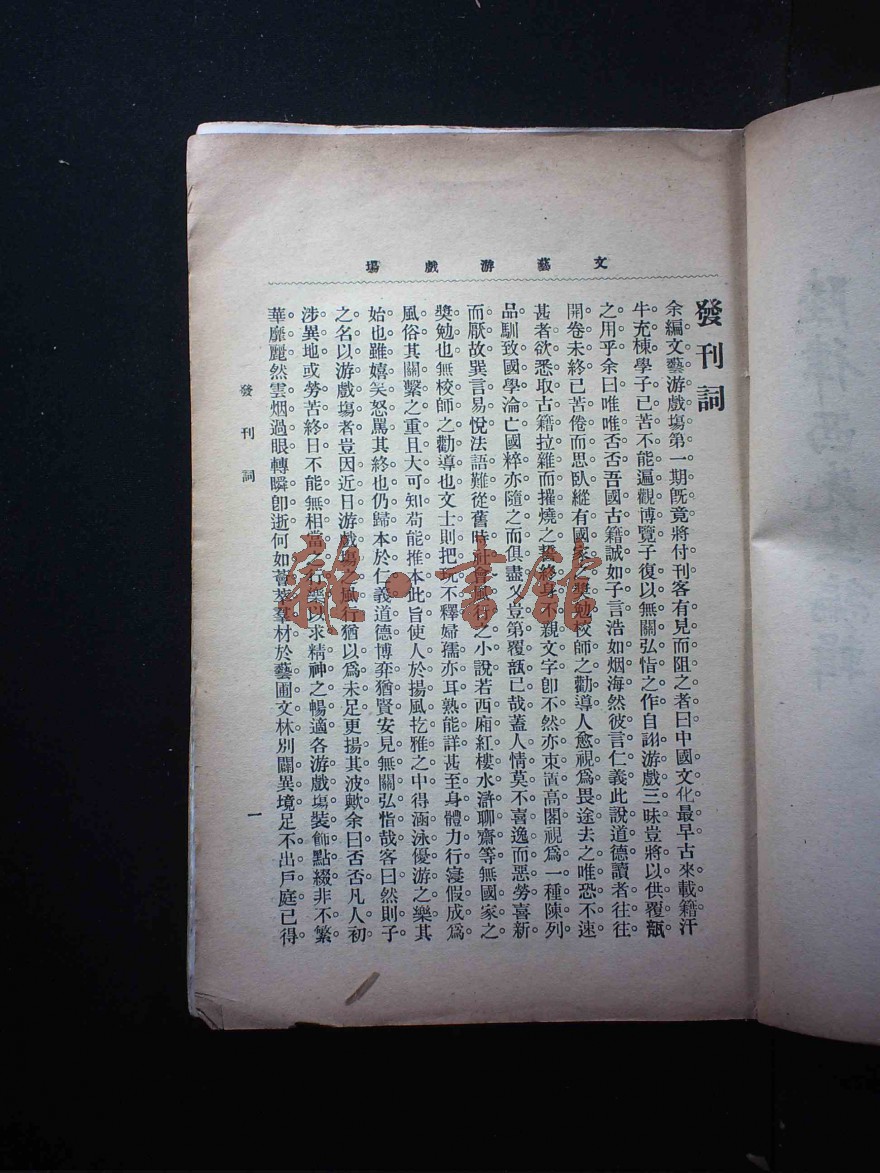 文藝游戲場
發刊詞
余編文藝游戲場第一期旣竟將付刊客有見而阻之者曰中國文化最早古來載籍汗
牛充棟學子已苦不能遍觀博覽子復以無關弘恉之作自詡游戲三昧豈將以供覆瓿
之用乎余曰唯唯否否吾國古籍誠如子言浩如烟海然彼言仁義此說道德讀者往往
開卷未終已苦倦而思臥縱有國家之奬勉校師之勸導人愈視爲畏途去之唯恐不速
甚者欲悉取古籍拉雜而摧燒之誓終身不親文字卽不然亦束置高閣視爲一種陳列
品馴致國學淪亡國粹亦隨之而俱盡又豈第覆瓿已哉蓋人情莫不喜逸而惡勞喜新
而厭故巽言易悅法語難從舊時社會風行之小說若西廂紅樓水滸聊齋等無國家之
奬勉也無校師之勸導也文士則把玩不釋婦孺亦耳熟能詳甚至身體力行寖假成爲
風俗其關繫之重且大可知苟能推本此旨使人於揚風扢雅之中得涵泳優游之樂其
始也雖嬉笑怒罵其終也仍歸本於仁義道德博弈猶賢安見無關弘恉哉客曰然則子
之名以游戲塲者豈因近日游戲塲之風行猶以爲未足更揚其波歟余曰否否凡人初
涉異地或勞苦終日不能無相當之行樂以求精神之暢適各游戲塲裝飾點綴非不繁
華靡麗然雲烟過眼轉瞬卽逝何如薈萃羣材於藝圃文林別闢異境足不出戶庭已得
發刊詞
一
雜·書館